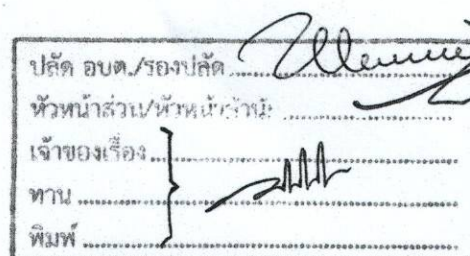 ปลัด อบต./รองปลัด
หัวหน้าส่วน/หัวหน้าสำนัก
เจ้าของเรื่อง
ทาน
พิมพ์